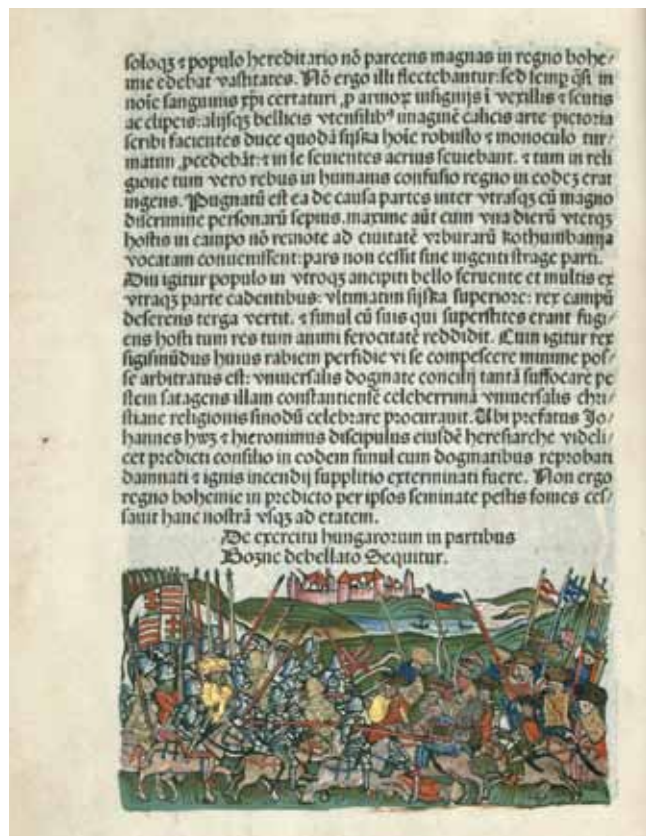 soloqȝ ⁊ populo hereditario nõ parcens magnas in regno bohe/
mie edebat vastitates. Nõ ergo illi flectebantur: sed semp q̃si in
noĩe sanguinis xp̃i certaturi ,p armoꝝ insignijs ĩ vexillis ⁊ scutis
ac clipeis: alijsqȝ bellicis vtensilibꝰ imaginẽ calicis arte pictoria
scribi facientes duce quodã sijska hoĩe robusto ⁊ monoculo tur/
matim ,pcedebãt: ⁊ in se seuientes acrius seuiebant. ⁊ tum in reli
gione tum vero rebus in humanis confusio regno in eodeȝ erat
ingens. Pugnatũ est ea de causa partes inter vtrasqȝ cũ magno
discrimine personarũ sepius. maxime aũt cum vna dierũ vterqȝ
hostis in campo nõ remote ad ciuitatẽ vrburarũ kothumbanya
vocatam conuenissent: pars non cessit sine ingenti strage parti.
Diu igitur populo in vtroqȝ ancipiti bello feruente et multis ex
vtraqȝ parte cadentibus: vltimatim sijska superiore: rex campũ
deserens terga vertit. ⁊ simul cũ suis qui superstites erant fugi/
ens hosti tum res tum animi ferocitatẽ reddidit. Cum igitur rex
sigismũdus huius rabiem perfidie vi se compescere minime pos/
se arbitratus est: vniuersalis dogmate concilij tantã suffocare pe
stem satagens illam constantiensẽ celeberrimã vniuersalis chri/
stiane religionis sinodũ celebrare procurauit. Ubi prefatus Jo/
hannes hwȝ ⁊ hieronimus discipulus eiusdẽ heresiarche videli/
cet predicti consilio in eodem simul cum dogmatibus reprobati
damnati ⁊ ignis incendij supplitio exterminati fuere. Non ergo
regno bohemie in predicto per ipsos seminate pestis fomes ces/
sauit hanc nostrã vsqȝ ad etatem.
De exercitu hungarorum in partibus
Bozne debellato Sequitur.